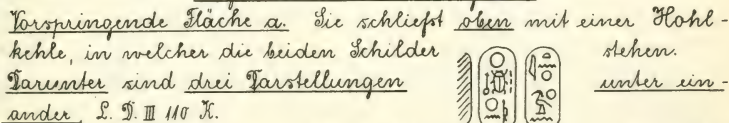 Vorspringende Fläche a. Sie schließt oben mit einer Hohl-
kehle, in welcher die beiden Schilder stehen.
Darunter sind drei Darstellungen unter ein-
ander, L. D. III 110 K.